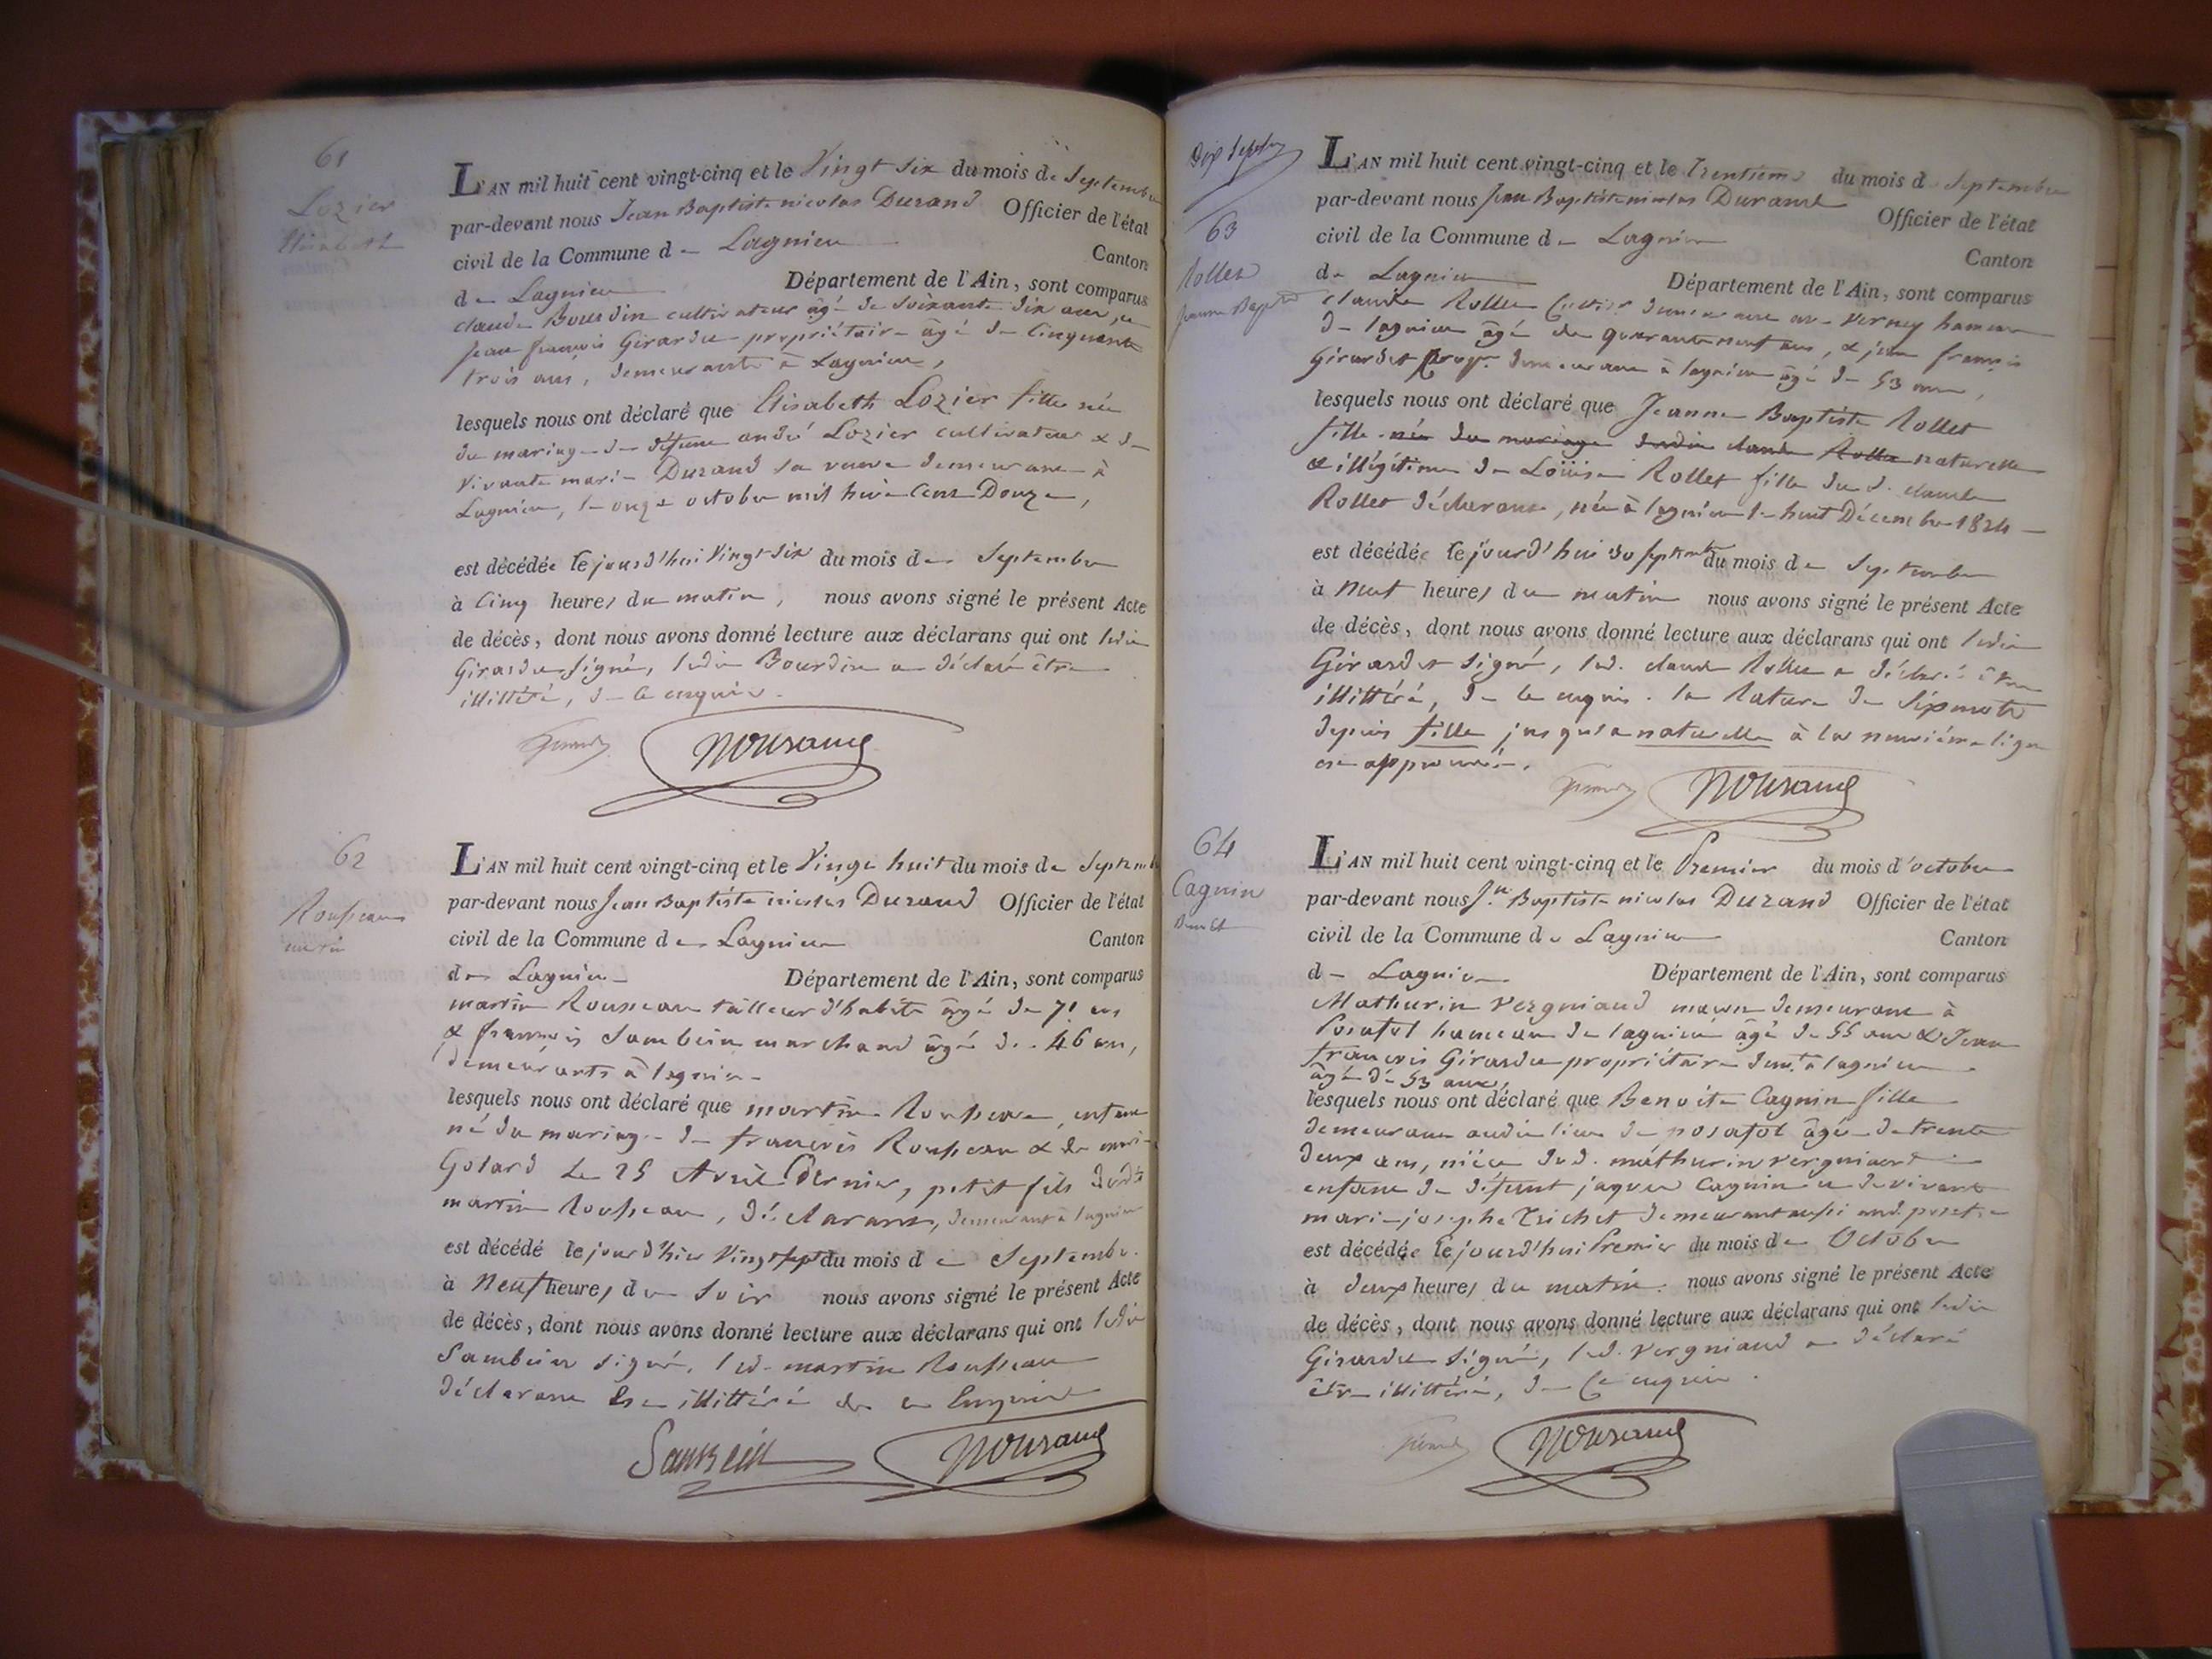 61
Lozier
Elisabeth
L'AN mil huit cent vingt-cinq et le Vingt six du mois de Septembre
par-devant nous Jean Baptiste nicolas Durand Officier de l'état
civil de la Commune de Lagnieu Canton
de Lagnieu Département de l'Ain, sont comparus
claude Bourdin cultivateur âgé de soixante dix ans, et
jean françois Girardet propriétaire âgé de Cinquante
trois ans, demeurants à Lagnieu,
lesquels nous ont déclaré que Elisabeth Lozier fille née
du mariage de défunt andré Lozier cultivateur & de
vivante marie Durand sa veuve demeurant à
Lagnieu, le onze octobre mil huit Cent Douze,
est décédée le jourd'hui Vingt-six du mois de Septembre
à Cinq heures du matin, nous avons signé le présent Acte
de décès, dont nous avons donné lecture aux déclarans qui ont ledit
Girardet signé, ledit Bourdin a déclaré être
illittéré, de ce enquis.
Girardet NDurand
62
Rousseau
martin
L'AN mil huit cent vingt-cinq et le Vingt huit du mois de Septembre
par-devant nous Jean Baptiste nicolas Durand Officier de l'état
civil de la Commune de Lagnieu Canton
de Lagnieu Département de l'Ain, sont comparus
martin Rousseau tailleur d'habits âgé de 71 ans
& françois Sambein marchand âgé de 46 ans,
demeurants à lagnieu
lesquels nous ont déclaré que martin Rousseau, enfant
né du mariage de françois Rousseau & de marie
Golard Le 25 Avril Dernier, petit fils dudit
martin Rousseau, déclarant, demeurant à lagnieu
est décédé le jour d'hier Vingt sept du mois de Septembre
à Neuf heures du soir nous avons signé le présent Acte
de décès, dont nous avons donné lecture aux déclarans qui ont ledit
Sambein signé, led. martin Rousseau
déclarant être illittéré de ce Enquis
Sambein NDurand
Dix Septem
63
Rollet
Jeanne Baptiste
L'AN mil huit cent vingt-cinq et le Trentième du mois de Septembre
par-devant nous Jean Baptiste nicolas Durand Officier de l'état
civil de la Commune de Lagnieu Canton
de Lagnieu Département de l'Ain, sont comparus
claude Rollet demeurant au Verney hameau
de lagnieu âgé de quarante neuf ans, & jean françois
Girardet prop.re demeurant à lagnieu âgé de 53 ans,
lesquels nous ont déclaré que Jeanne Baptiste Rollet
fille née du mariage dudit claude Rollet naturelle
& illégitime de Loüise Rollet fille dud. claude
Rollet déclarant, née à lagnieu le huit Décembre 1824
est décédée le jourd'hui 30 septembre du mois de Septembre
à Neuf heures du matin nous avons signé le présent Acte
de décès, dont nous avons donné lecture aux déclarans qui ont ledit
Girardet signé, led. claude Rollet a déclaré être
illittéré, de ce enquis. la Rature de sixmots
depuis fille jusqu'a naturelle à la neuvième ligne
est approuvée.
Girardet NDurand
64
Cagnin
Benoite
L'AN mil huit cent vingt-cinq et le Premier du mois d'octobre
par-devant nous J.n Baptiste nicolas Durand Officier de l'état
civil de la Commune de Lagnieu Canton
de Lagnieu Département de l'Ain, sont comparus
Mathurin Vergniaud maçon demeurant à
Posafol hameau de lagnieu âgé de 55 ans & Jean
François Girardet propriétaire dem.t à lagnieu
âgé de 53 ans,
lesquels nous ont déclaré que Benoite Cagnin fille
demeurant audit lieu de posafol âgée de trente
deux ans, nièce dud. mathurin vergniaud
enfant de défunt jaques Cagnin et de vivante
marie josephe Trichet demeurant aussi aud.
est décédée le jourd'hui Premier du mois de Octobre
à deux heures du matin. nous avons signé le présent Acte
de décès, dont nous avons donné lecture aux déclarans qui ont ledit
Girardet signé, led. Vergniaud a déclaré
être illittéré, de Ce enquis.
Girardet NDurand